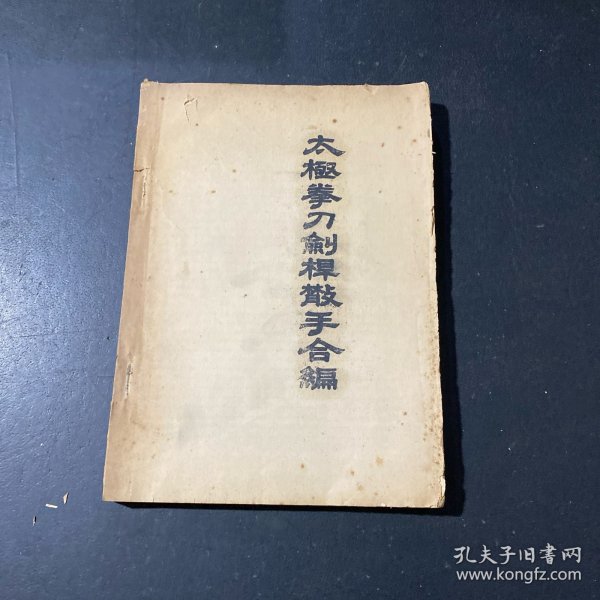 太極拳刀劍桿散手合編
孔夫子旧書网
www.kongfz.com